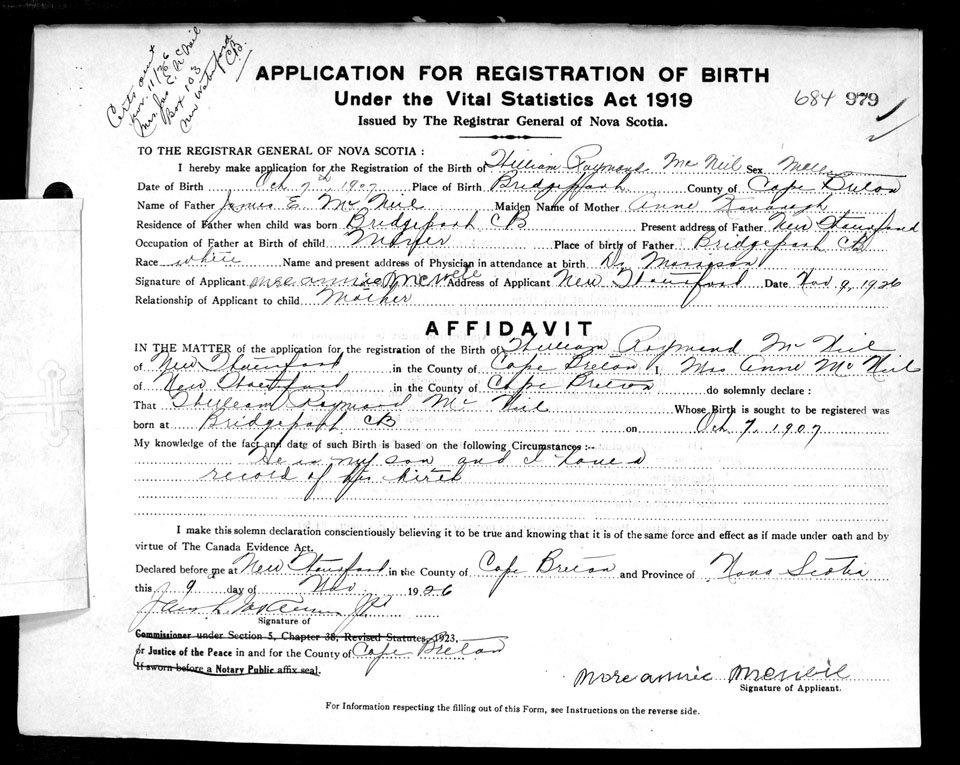 Certs sent
Nov. 11/36
Mrs Jas E. McNeil
Box 103
New Waterford
CB.
APPLICATION FOR REGISTRATION OF BIRTH
Under the Vital Statistics Act 1919
684 979
Issued by The Registrar General of Nova Scotia.
TO THE REGISTRAR GENERAL OF NOVA SCOTIA :
I hereby make application for the Registration of the Birth of William Raymond Mc Neil Sex Male
Date of Birth Oct 7th, 1907 Place of Birth Bridgeport County of Cape Breton
Name of Father James E. Mc Neil Maiden Name of Mother Anne Kavanagh
Residence of Father when child was born Bridgeport CB Present address of Father New Waterford
Occupation of Father at Birth of child Place of birth of Father Bridgeport CB
Race white Name and present address of Physician in attendance at birth Dr
Signature of Applicant mrs annie McNeil Address of Applicant New Waterford Date Nov 9, 1926
Relationship of Applicant to child Mother
AFFIDAVIT
IN THE MATTER of the application for the registration of the Birth of William Raymond Mc Neil
of New Waterford in the County of Cape Breton I, Mrs Anne Mc Neil
of New Waterford in the County of Cape Breton do solemnly declare :
That William Raymond Mc Neil Whose Birth is sought to be registered was
born at Bridgeport CB on Oct 7, 1907
My knowledge of the fact and date of such Birth is based on the following Circumstances :--
He is my son and I have a
record of his birth
I make this solemn declaration conscientiously believing it to be true and knowing that it is of the same force and effect as if made under oath and by
virtue of The Canada Evidence Act.
Declared before me at New Waterford in the County of Cape Breton and Province of Nova Scotia
this 9 day of Nov 1926
Signature of
Commissioner under Section 5, Chapter 38, Revised Statutes, 1923,
or Justice of the Peace in and for the County of Cape Breton
If sworn before a Notary Public affix seal.
mrs annie mcneil
Signature of Applicant.
For Information respecting the filling out of this Form, see Instructions on the reverse side.